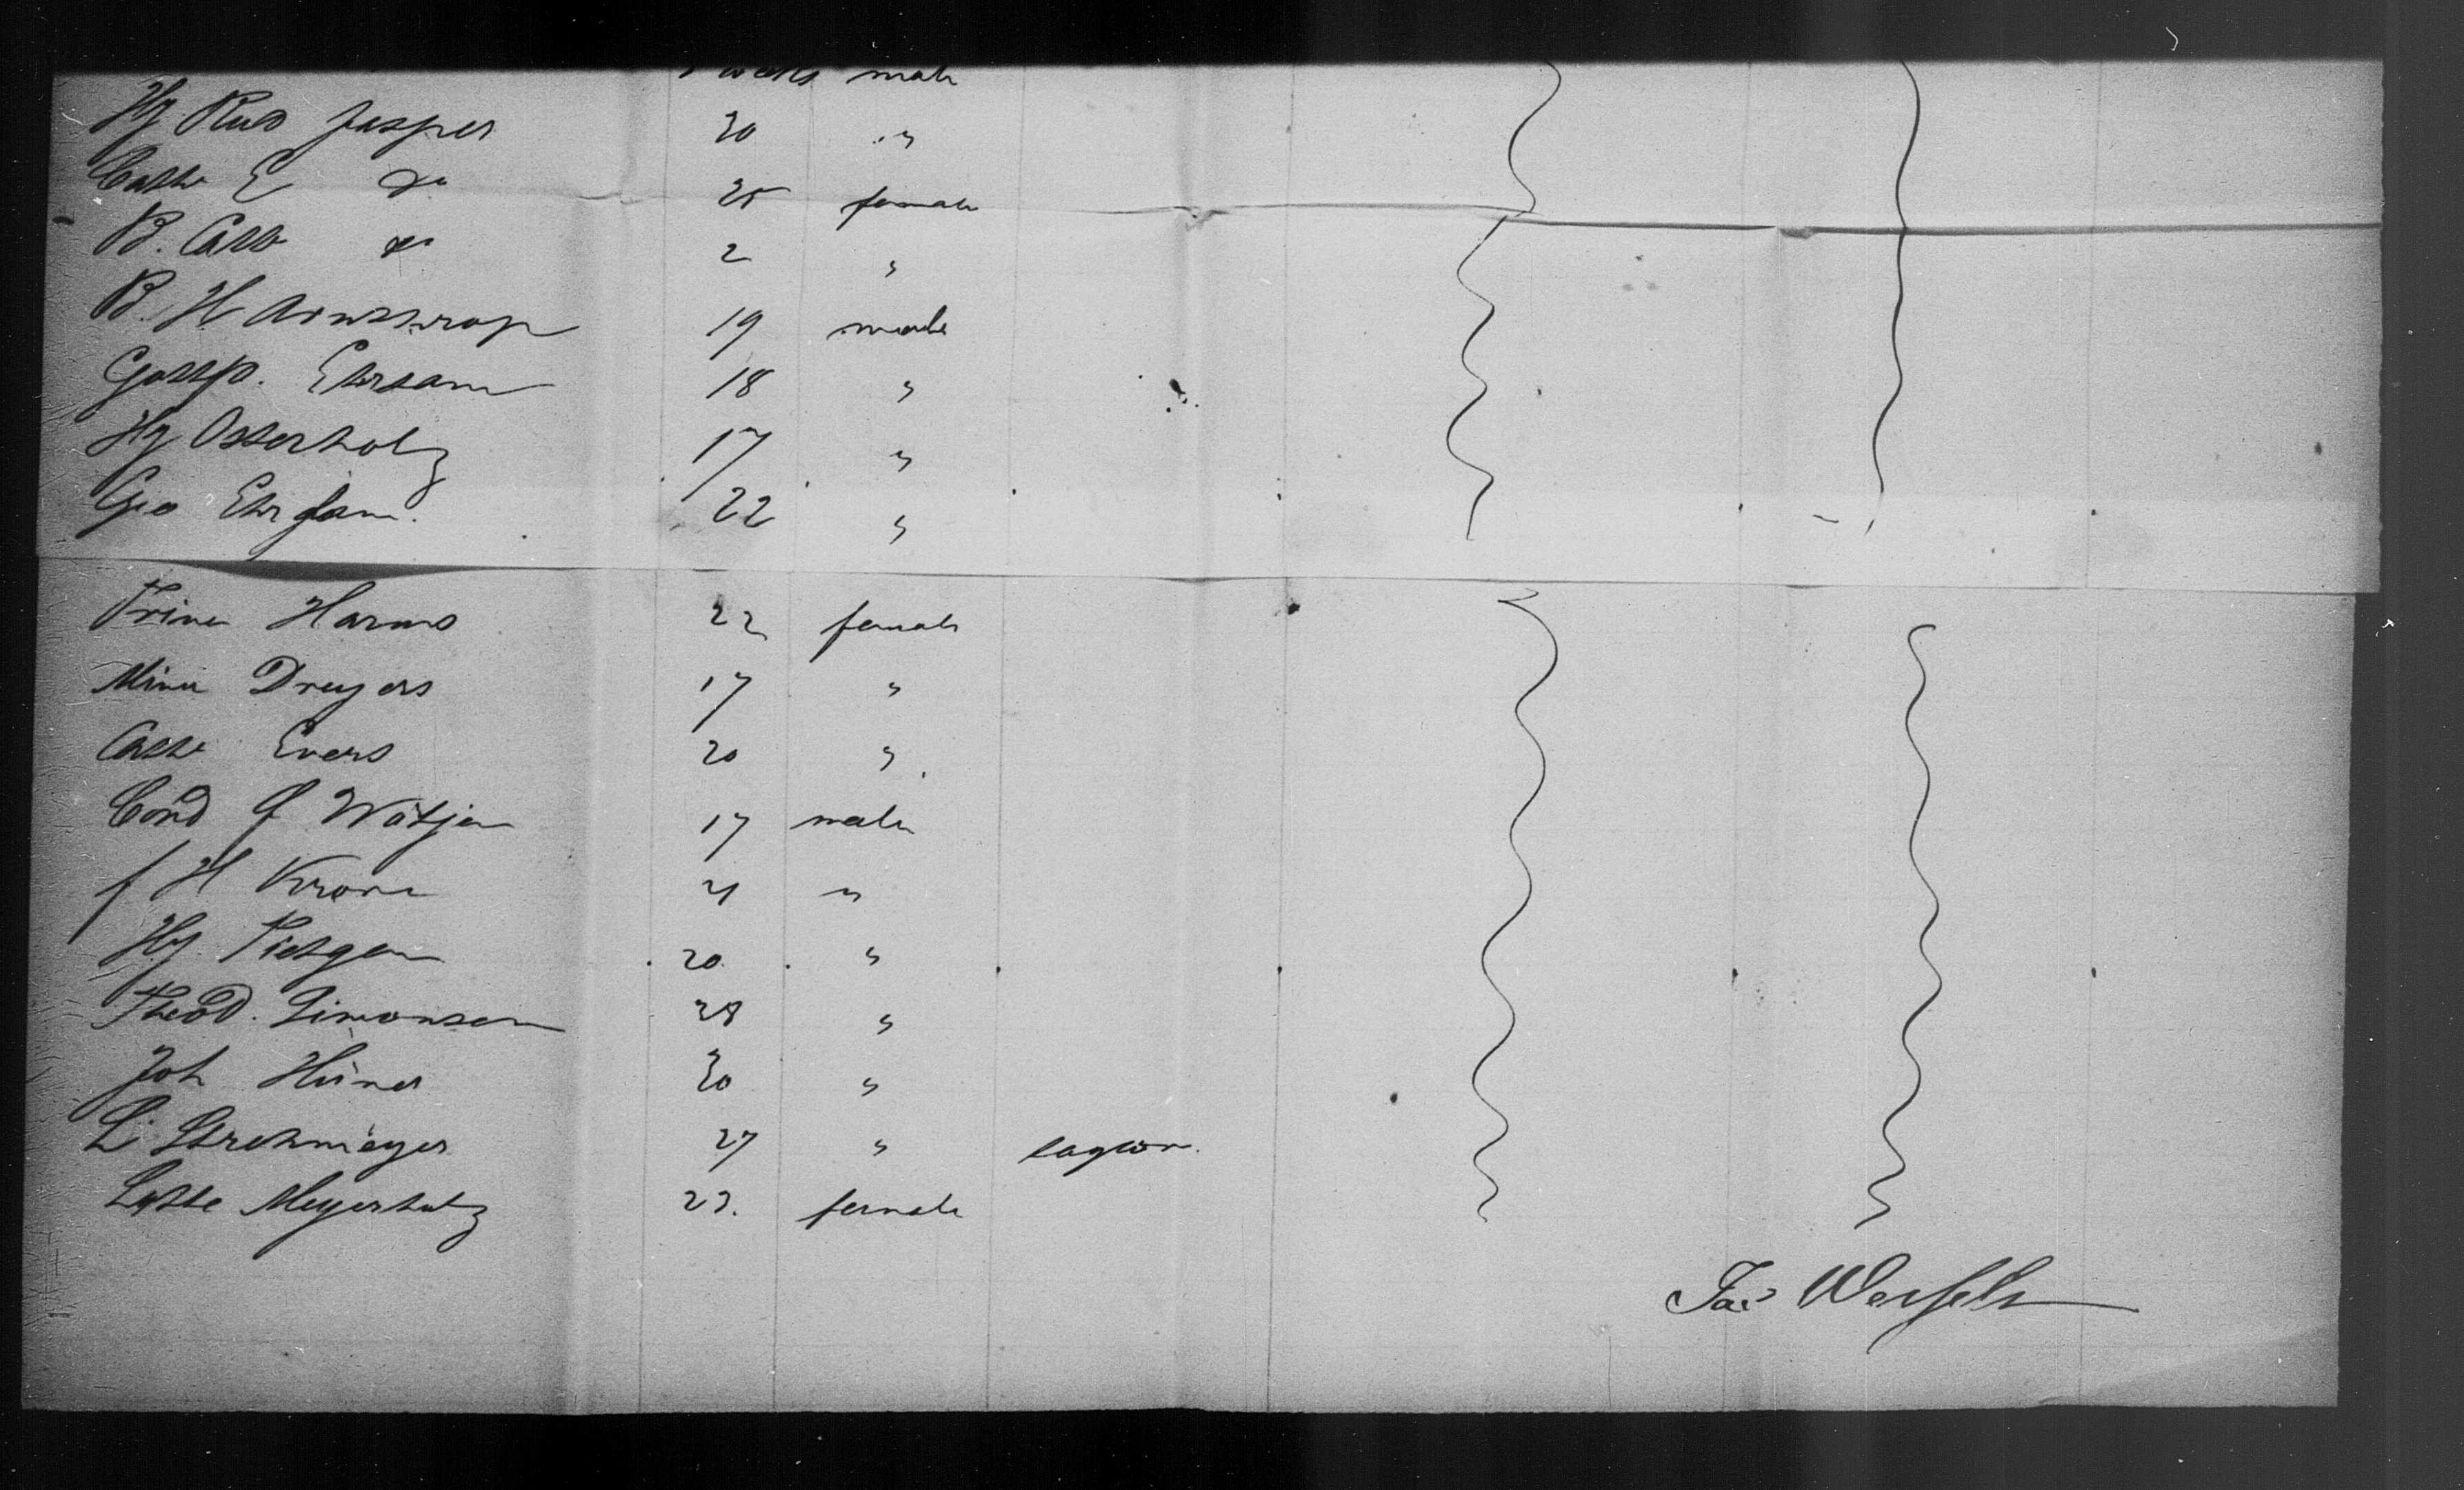 weeks male
Hy Rud Jasper 30 "
Cathe E do 25 female
B. Cath do 2 "
B. H 19 male
Ehrsam 18 "
Hy Osterholz 17 "
Geo Ehrsam. 22 "
Trine Harms 22 female
Mine Dreyers 17 "
Cathe Evers 20 "
Cord Wätjen 17 male
H Krone "
Hy. Tietgen 20 "
Theod. Simonsen 28 "
Joh Hüner 30 "
L. Strohmeyer 27 "
Lotte Meyerholz 23. female
Jas Wessels